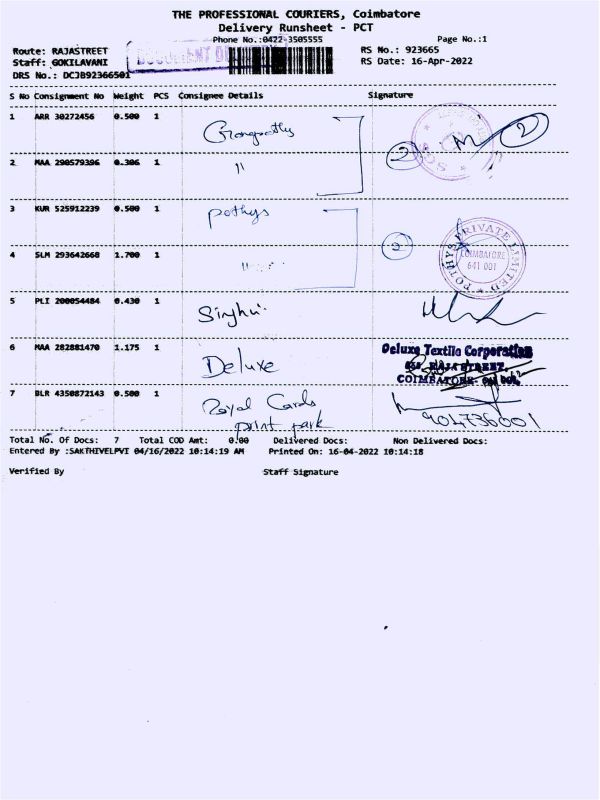 THE PROFESSIONAL COURIERS, Coimbatore
Delivery Runsheet - PCT
Phone No.:0422-3505555 Page No.:1
Route: RAJASTREET RS No.: 923665
Staff: GOKILAVANI DOCUMENT RS Date: 16-Apr-2022
DRS No.: DCJB92366501
S No Consignment No Weight PCS Consignee Details Signature
1 ARR 30272456 0.500 1
2 MAA 290579396 0.306 1 " 2 2
3 KUR 525912239 0.500 1 pothys
4 SLM 293642668 1.700 1 " 2 POTHYS PRIVATE LIMITED COIMBATORE 641 001
5 PLI 200054484 0.430 1
6 MAA 282881470 1.175 1 Deluxe Deluxe Textile Corporation
RAJA STREET,
COIMBATORE-
7 BLR 4350872143 0.500 1 Royal Cards
print park 904736001
Total No. Of Docs: 7 Total COD Amt: 0.00 Delivered Docs: Non Delivered Docs:
Entered By :SAKTHIVELPVI 04/16/2022 10:14:19 AM Printed On: 16-04-2022 10:14:18
Verified By Staff Signature